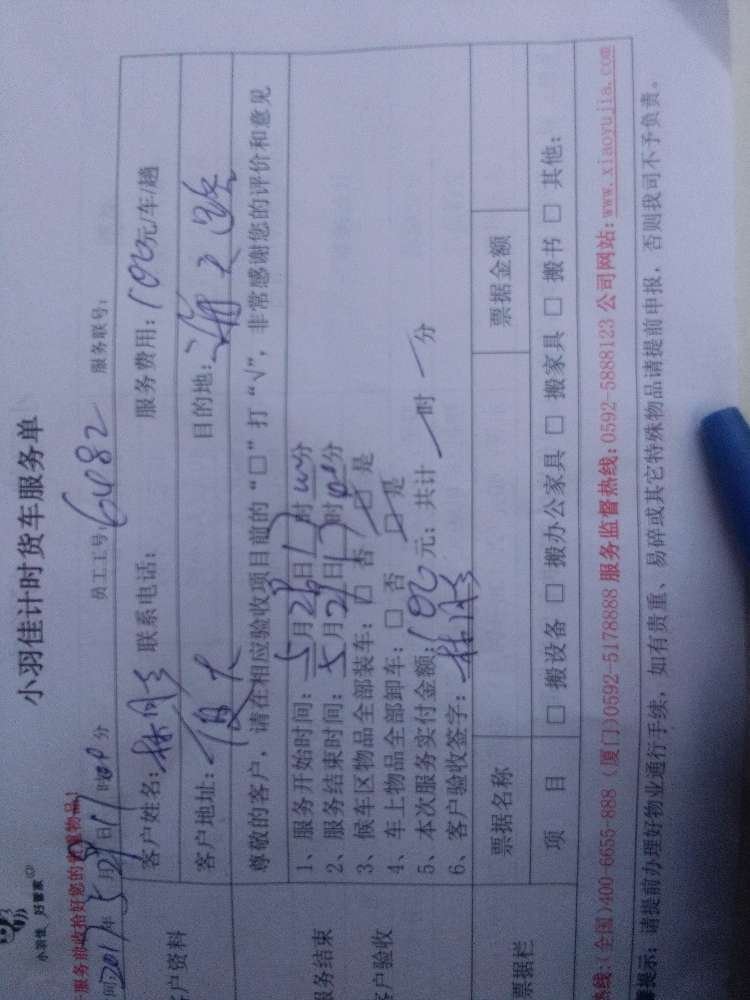 小羽佳 好管家
小羽佳计时货车服务单
服务前收拾好您的贵重物品!
2017年5月28日17时 分 员工工号:6482 服务联号:
客户资料
客户姓名: 联系电话: 服务费用: 元/车/趟
客户地址:厦大 目的地:
尊敬的客户,请在相应验收项目前的“□”打“√”,非常感谢您的评价和意见
服务结束
客户验收
1、服务开始时间:5月28日17时 分
2、服务结束时间:5月28日17时 分
3、候车区物品全部装车:□ 否 □ 是
4、车上物品全部卸车:□ 否 □ 是
5、本次服务实付金额: 元;共计 时 分
6、客户验收签字:
票据栏
票据名称 票据金额
项 目 □ 搬设备 □ 搬办公家具 □ 搬家具 □ 搬书 □ 其他:
热线:(全国)400-6655-888 (厦门)0592-5178888 服务监督热线:0592-5888123 公司网站:www.xiaoyujia.com
提示:请提前办理好物业通行手续,如有贵重、易碎或其它特殊物品请提前申报,否则我司不予负责。